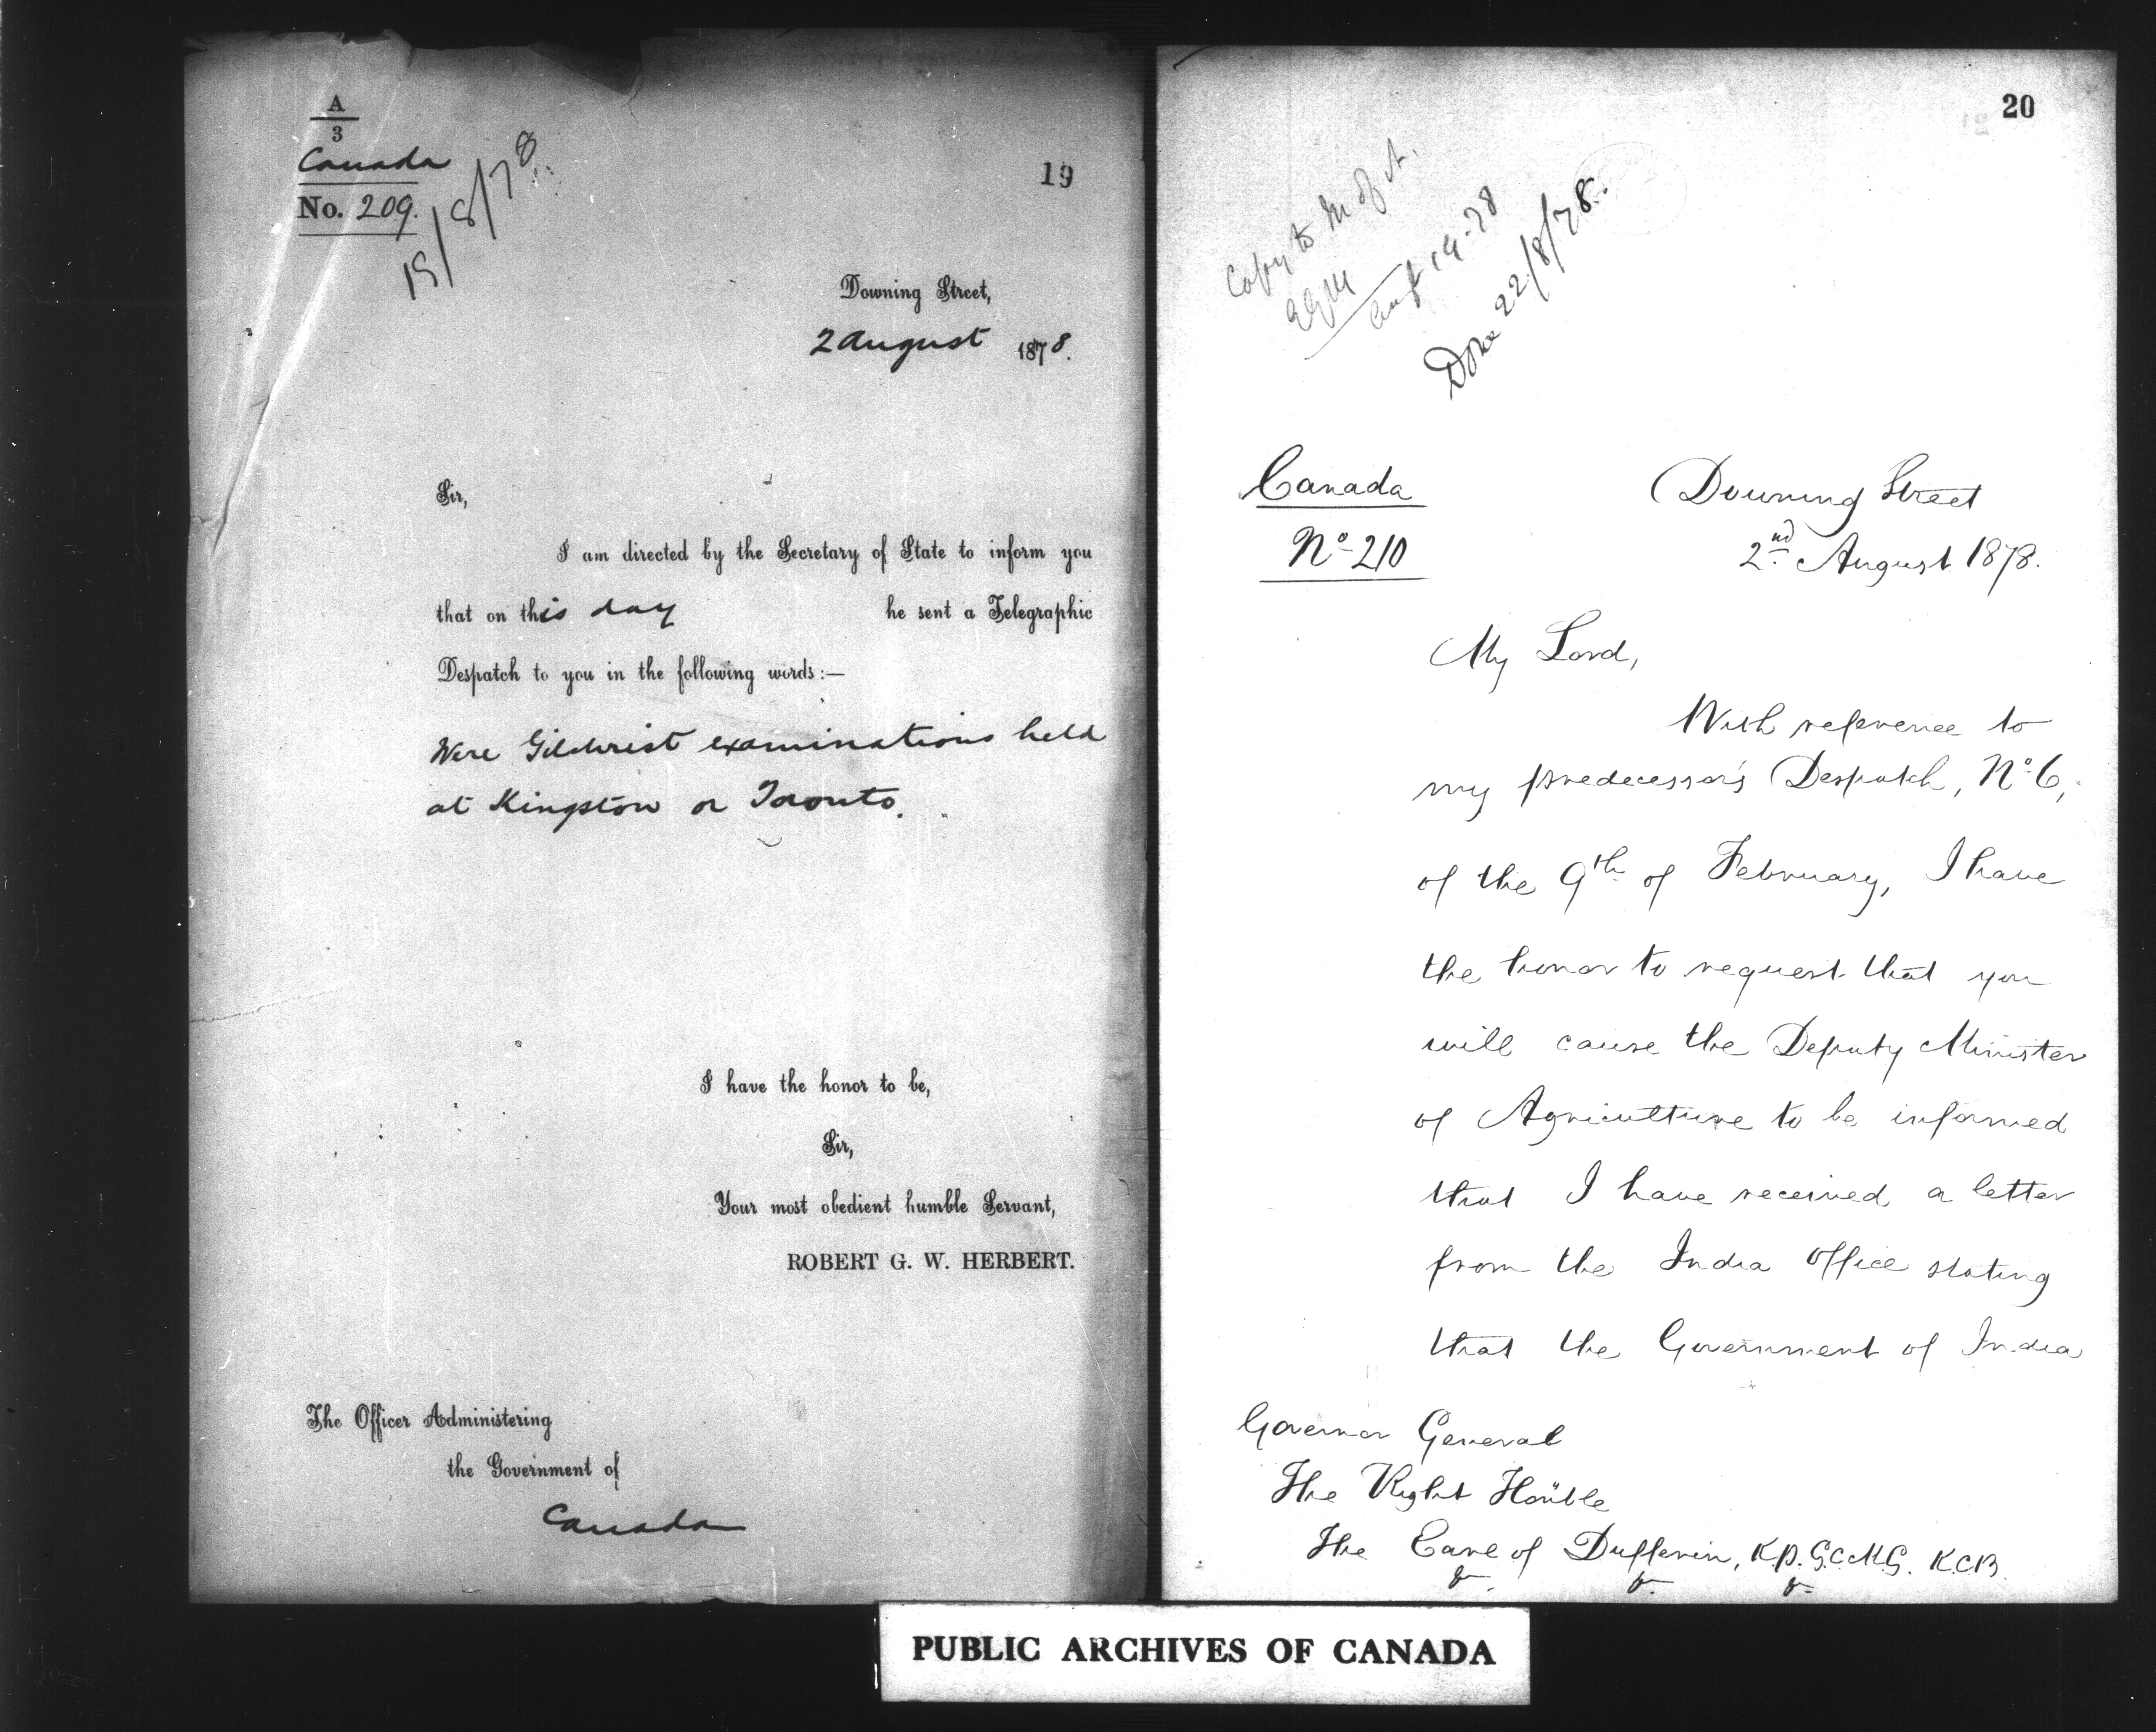 A
3
Canada
No. 209.
19/8/78
19
Downing Street,
2 August 1878.
Sir,
I am directed by the Secretary of State to inform you
that on this day he sent a Telegraphic
Despatch to you in the following words:—
Were Gilchrist examinations held
at Kingston or Toronto.
I have the honor to be,
Sir,
Your most obedient humble Servant,
ROBERT G. W. HERBERT.
The Officer Administering
the Government of
Canada
20
Copy to M of A.
Aug 19-78
Done 22/8/78.
Canada
No 210
Downing Street
2nd August 1878.
My Lord,
With reference to
my predecessor's Despatch, No 6,
of the 9th of February, I have
the honor to request that you
will cause the Deputy Minister
of Agriculture to be informed
that I have received a letter
from the India Office stating
that the Government of India
Governor General
The Right Honble
The Earl of Dufferin, K.P. G.C.M.G. K.C.B.
PUBLIC ARCHIVES OF CANADA